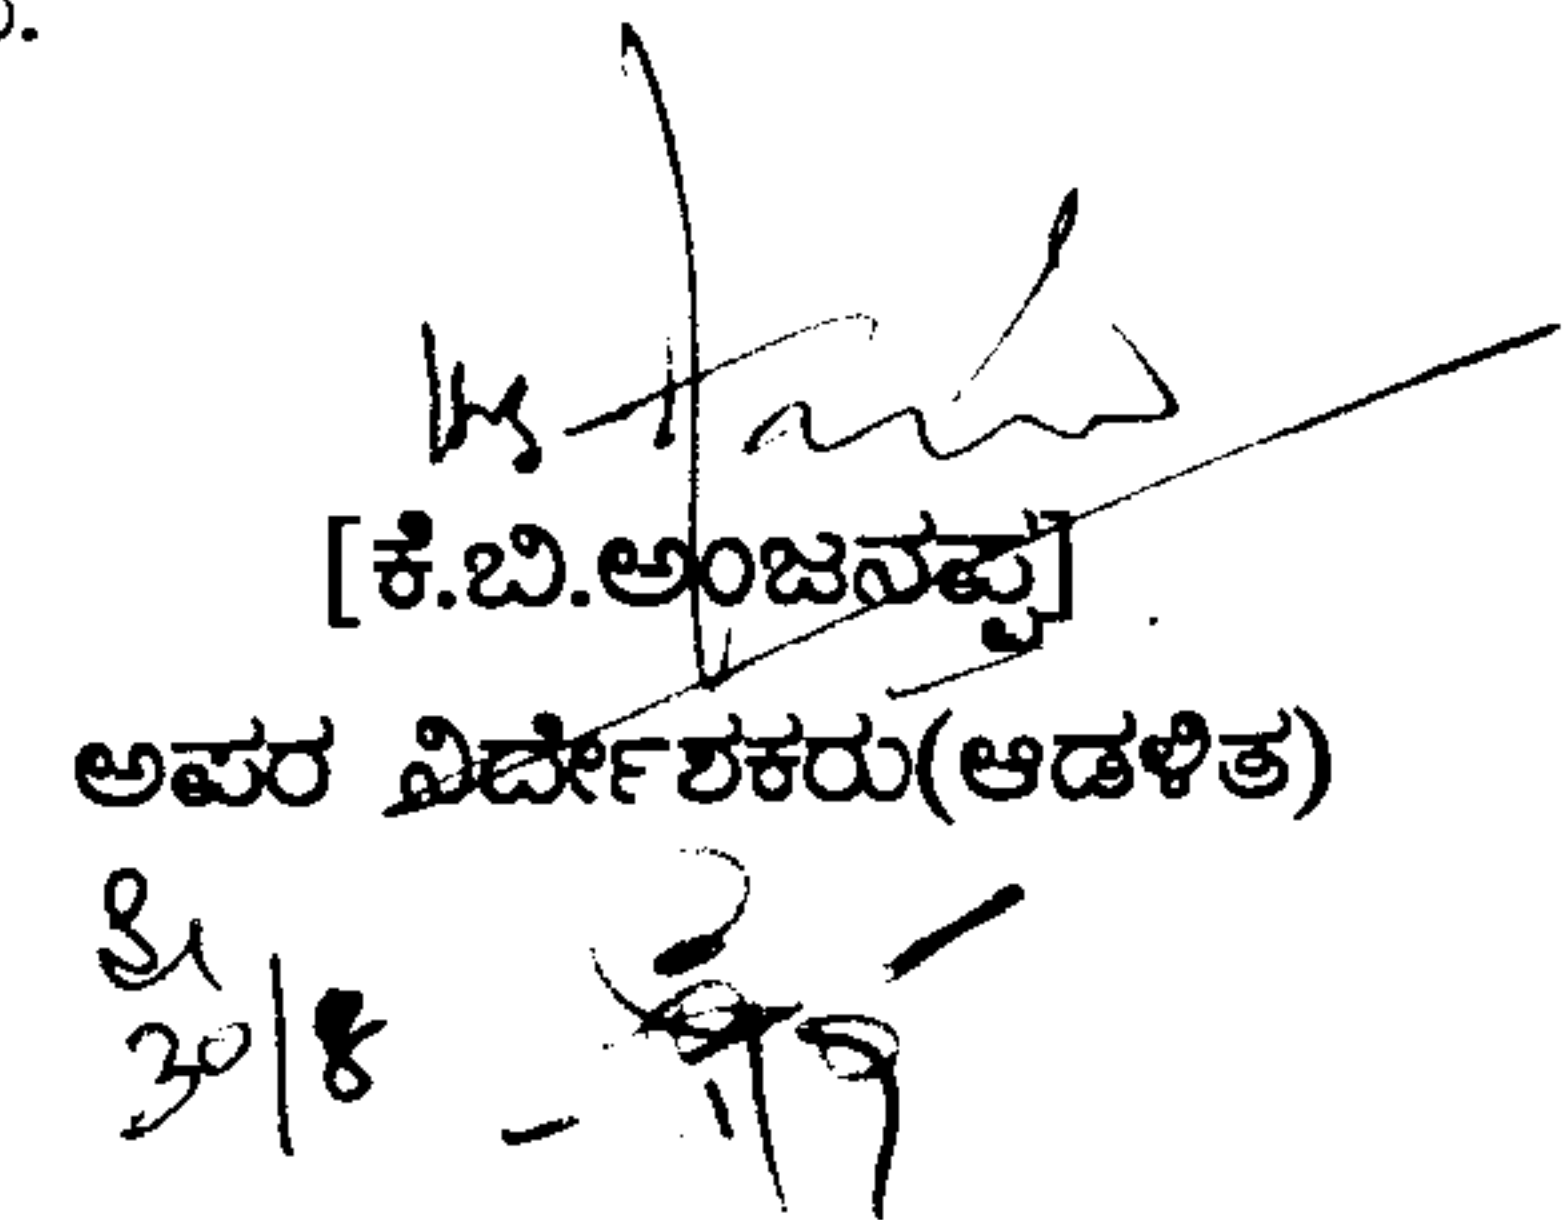 [ಕೆ.ಬಿ.ಅಂಜನಪ್ಪ]
ಅಪರ ನಿರ್ದೇಶಕರು(ಆಡಳಿತ)
30/8